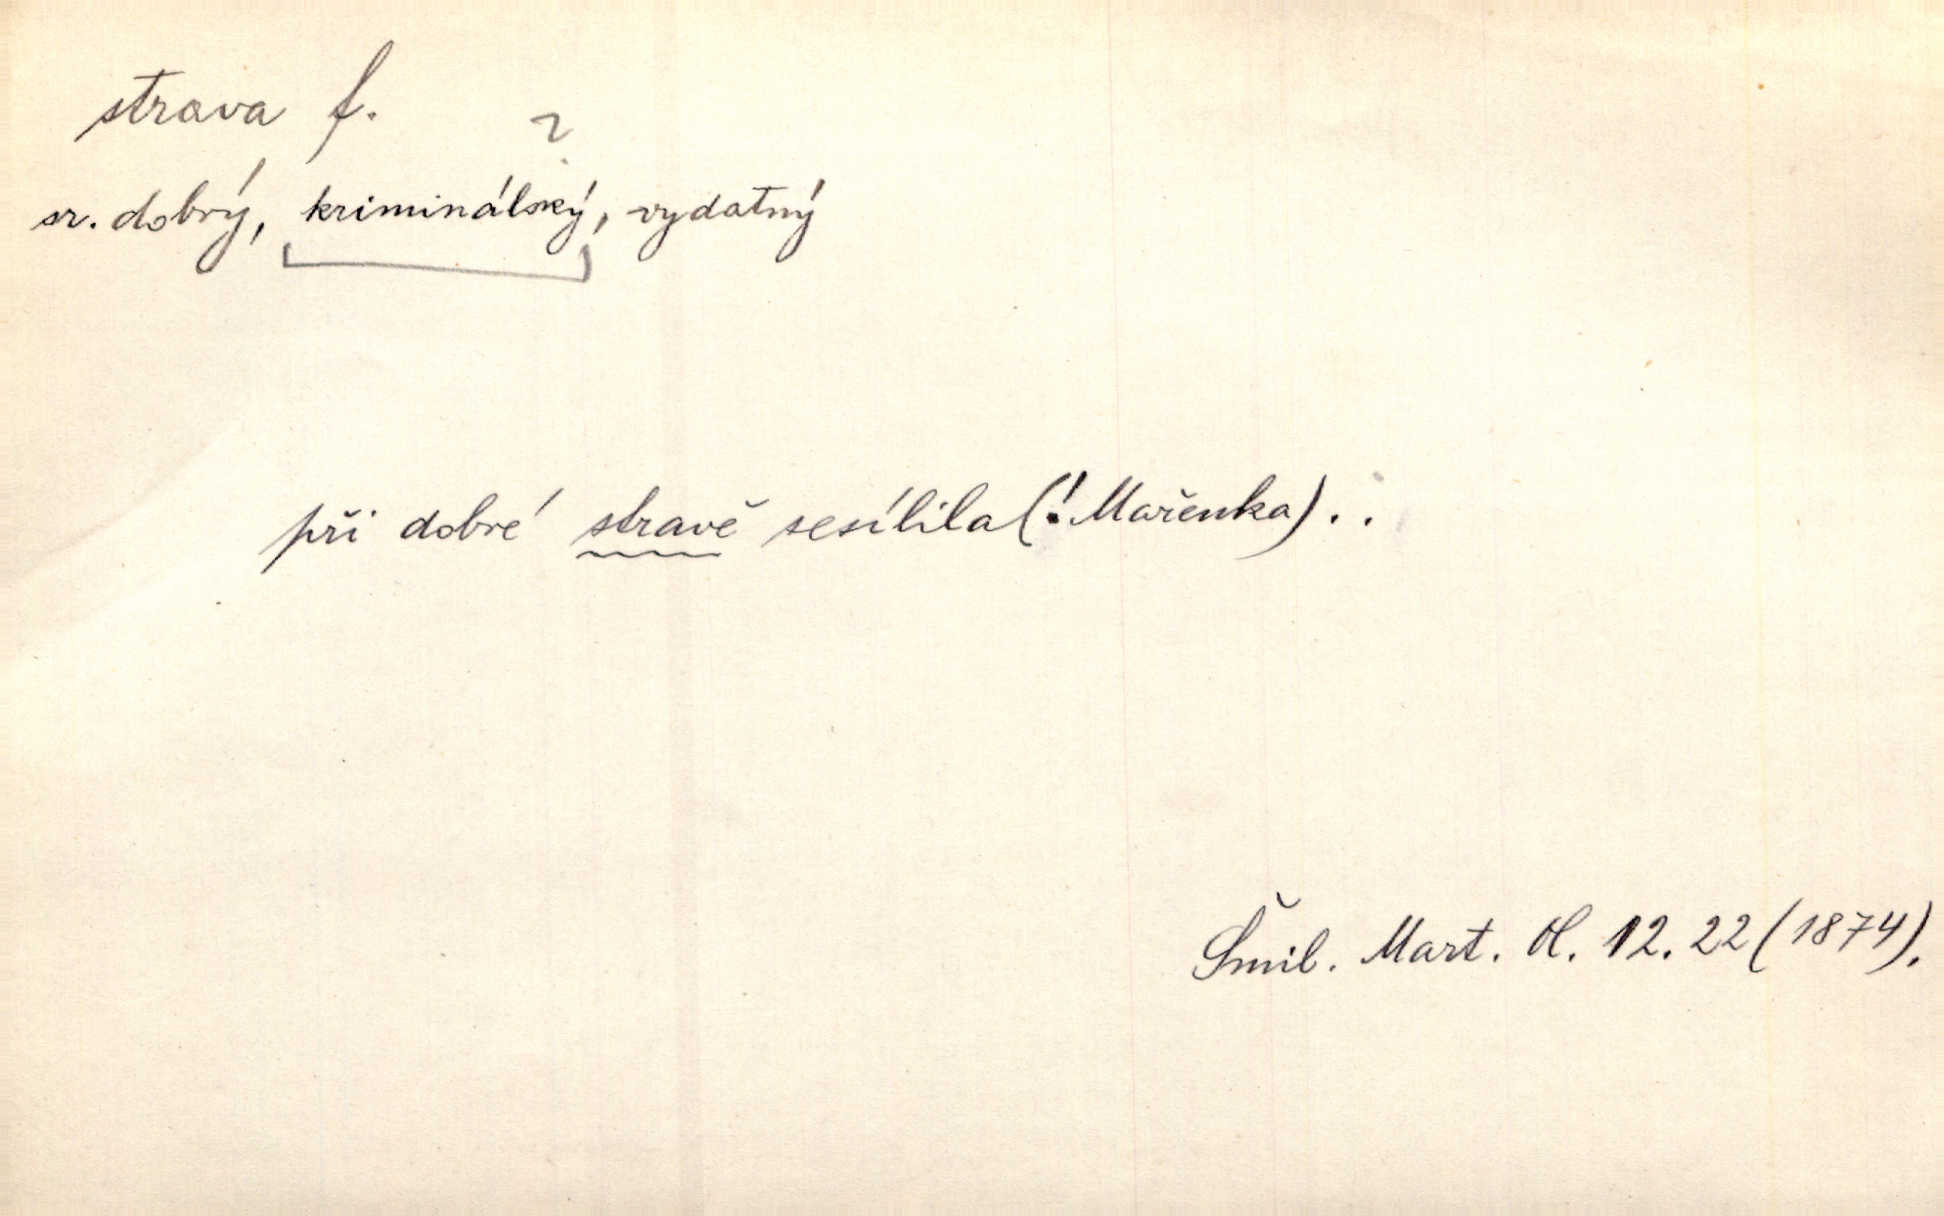 strava f.
?
sr. dobrý, kriminálský, vydatný
při dobré stravě sesílila (! Mařenka) . .
Šmil. Mart. Ol. 12. 22 (1874).